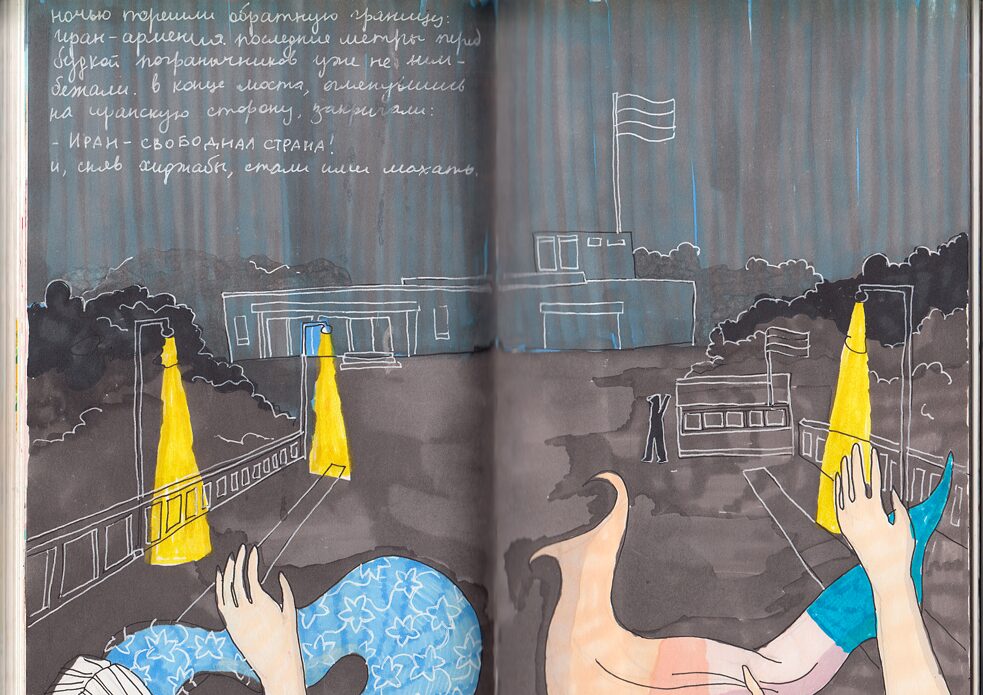 ночью перешли обратную границу:
иран-армения. последние метры перед
будкой пограничников уже не ним-
бежали. в конце моста, оглянувшись
на иранскую сторону, закричали:
- ИРАН - СВОБОДНАЯ СТРАНА!
и, сняв хиджабы, стали ими махать.